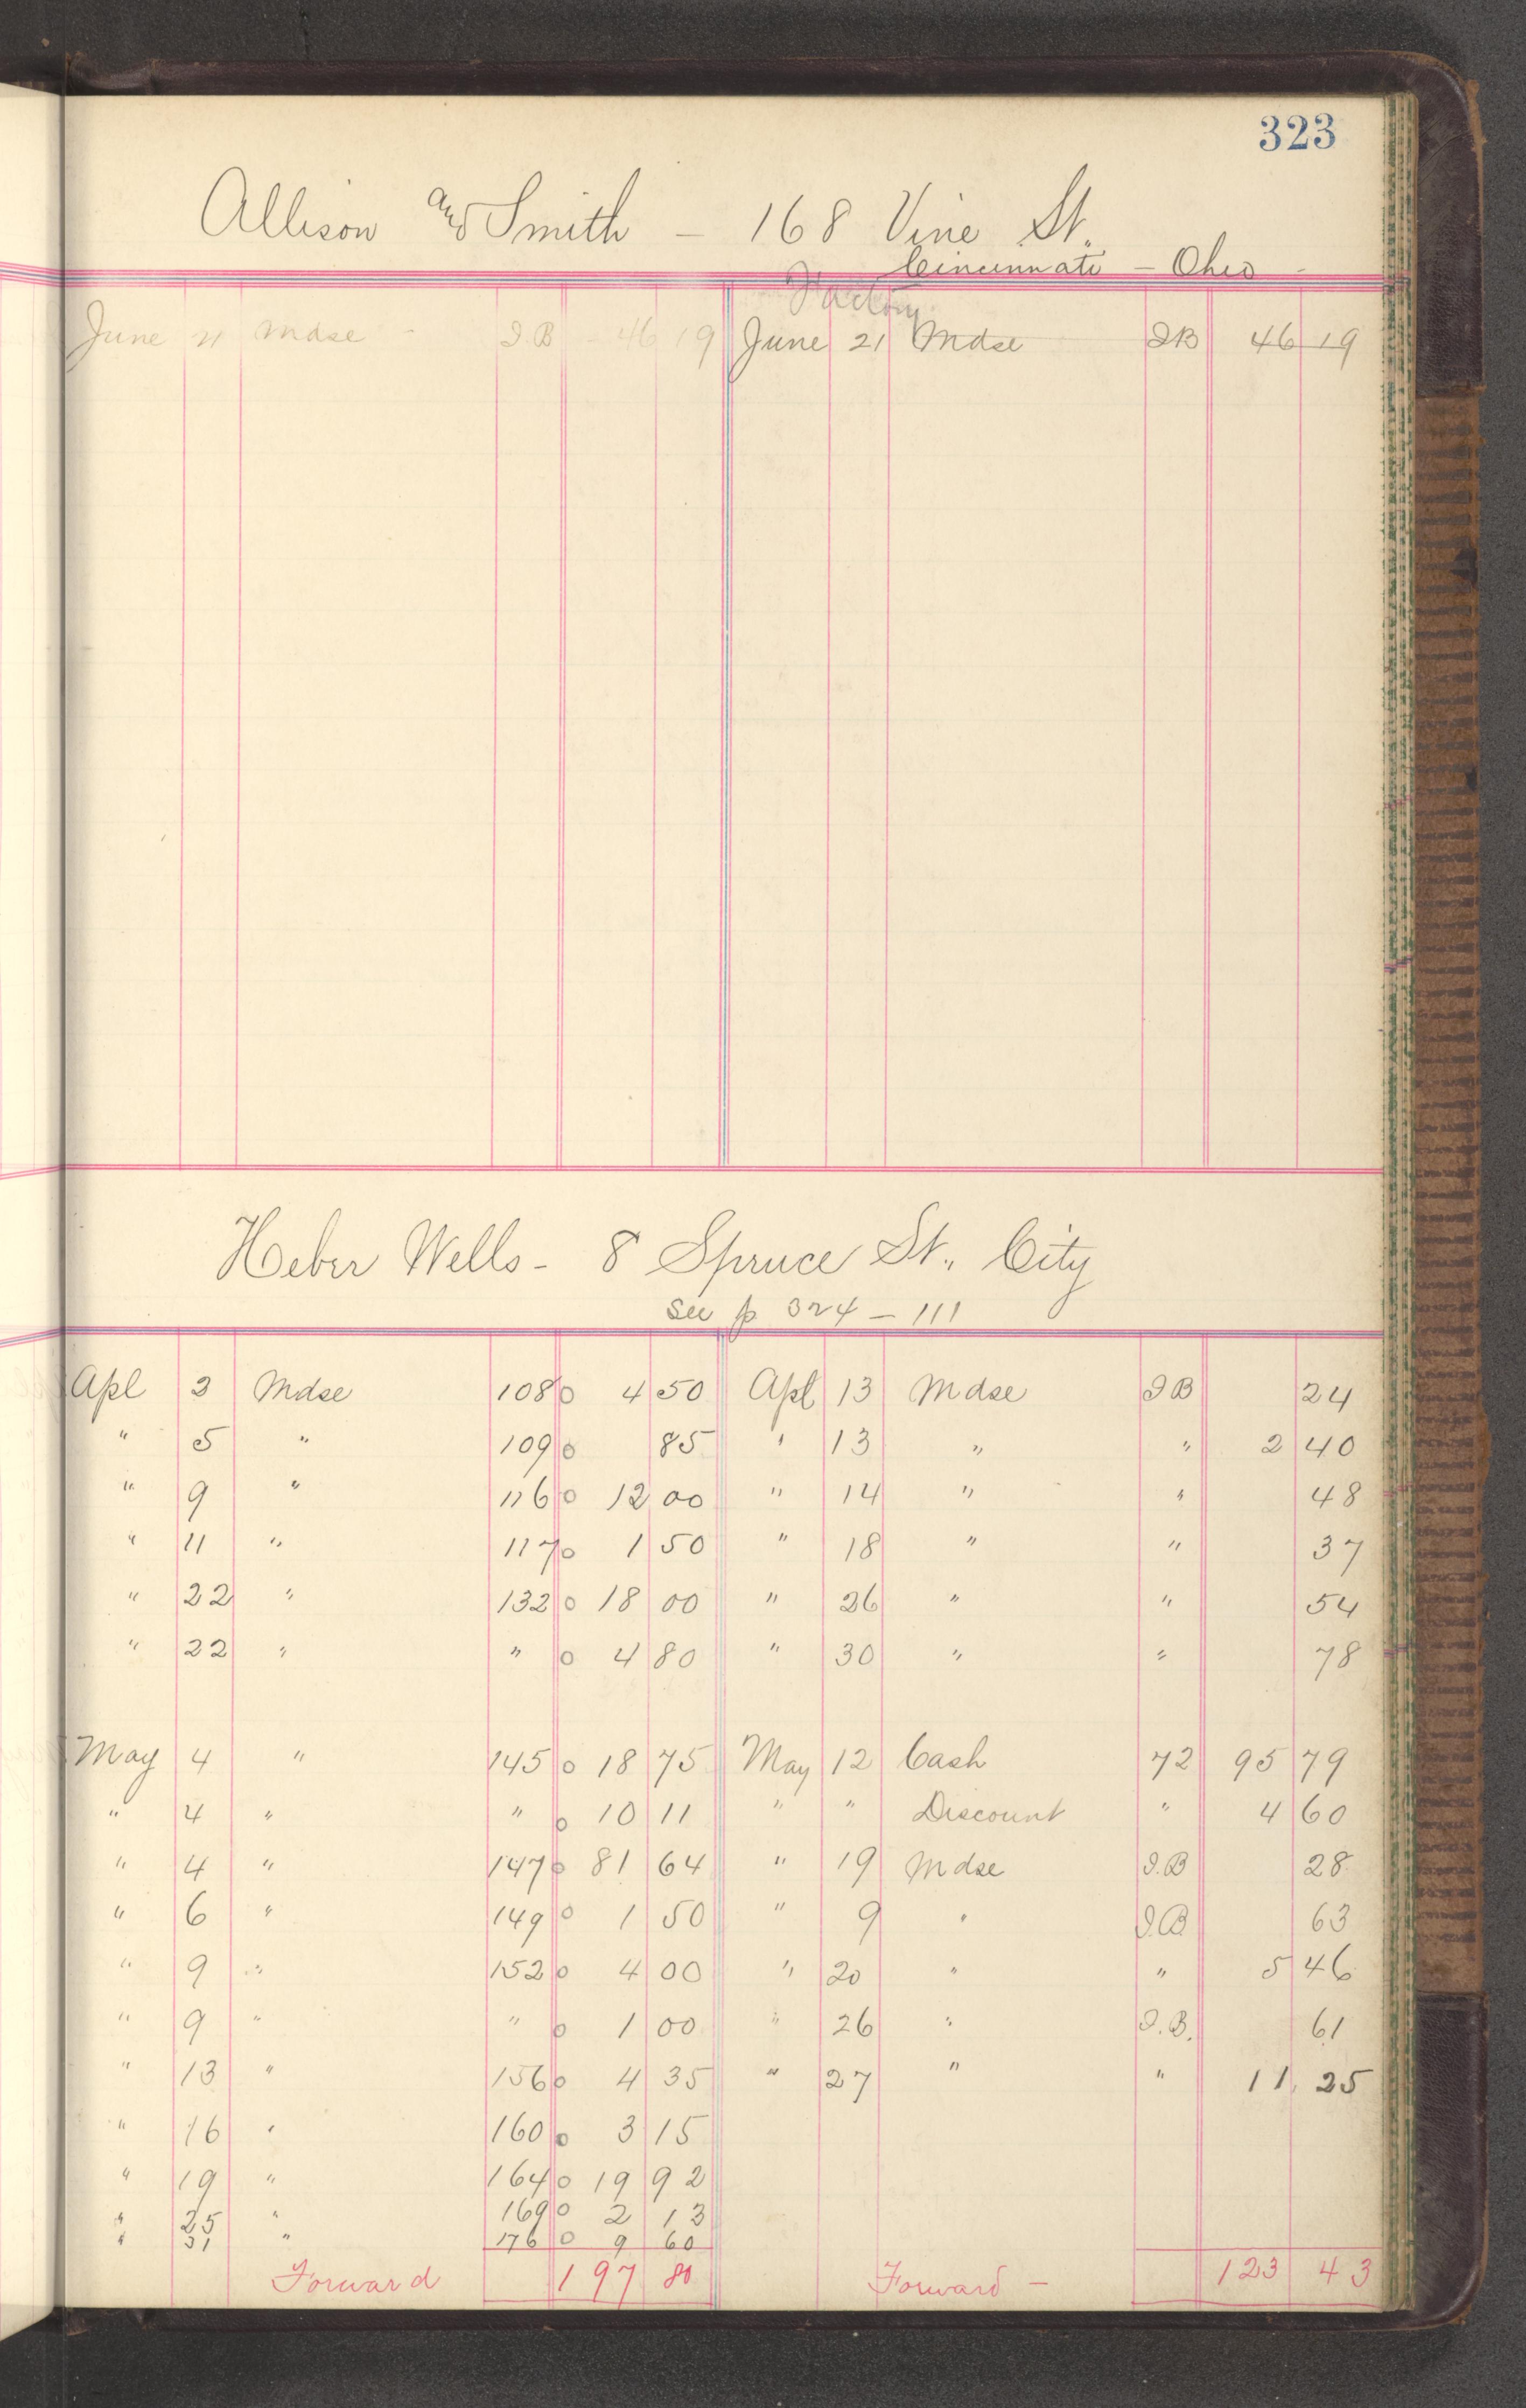 323
Allison and Smith – 168 Vine St.
Cincinnati – Ohio –
Factory
June 21 Mdse - I B 46 19 June 21 Mdse I B 46 19
Heber Wells – 8 Spruce St., City
See p 324 – 111
Apl 2 Mdse 108 o 4 50 Apl 13 Mdse I B 24
" 5 " 109 o 85 " 13 " " 2 40
" 9 " 116 o 12 00 " 14 " " 48
" 11 " 117 o 1 50 " 18 " " 37
" 22 " 132 o 18 00 " 26 " " 54
" 22 " " o 4 80 " 30 " " 78
May 4 " 145 o 18 75 May 12 Cash 72 95 79
" 4 " " o 10 11 " " Discount " 4 60
" 4 " 147 o 81 64 " 19 Mdse I.B 28
" 6 " 149 o 1 50 " 9 " I.B 63
" 9 " 152 o 4 00 " 20 " " 5 46
" 9 " " o 1 00 " 26 " I.B. 61
" 13 " 156 o 4 35 " 27 " " 11 25
" 16 " 160 o 3 15
" 19 " 164 o 19 92
" 25 " 169 o 2 13
" 31 " 176 o 9 60
Forward 197 80 Forward – 123 43